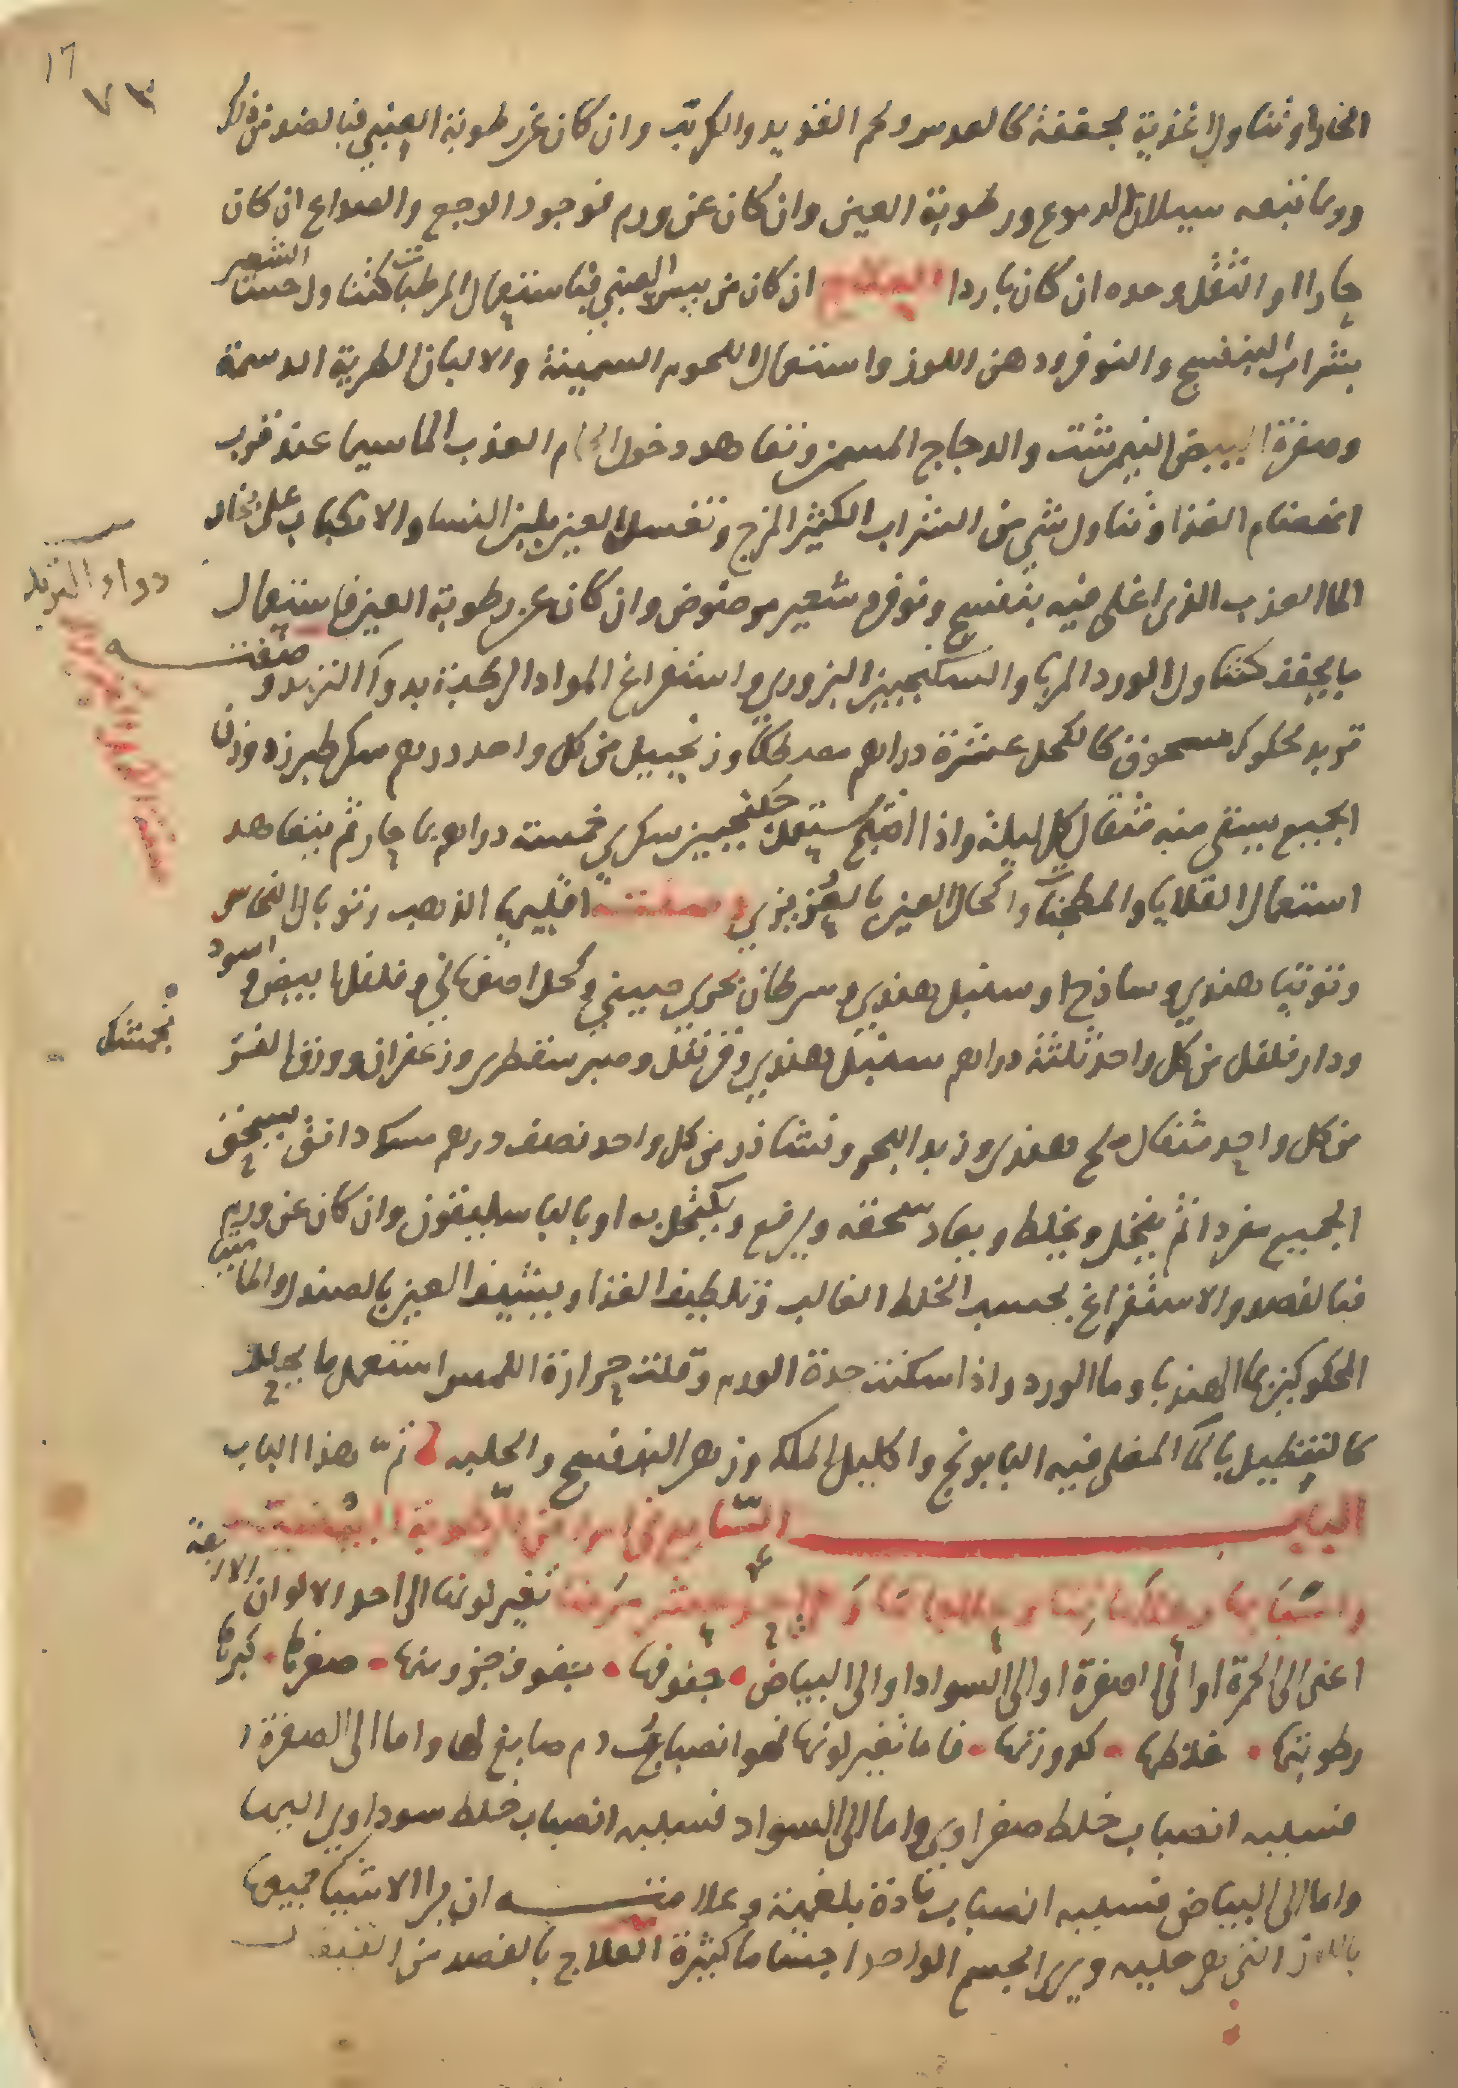 ١٦
٧٣
الحار او تناول اغذية مجففة كالعدس ولحم القديد والكرنب وان كان عن رطوبة العينين فبالضد من ذلك
وربما تبعه سيلان الدموع ورطوبة العين وان كان عن ورم فوجود الوجع والصداع ان كان
حارا او الثقل وحده ان كان باردا العلاج ان كان من يبس العينين فباستعمال المرطبات كتناول حسا الشعير
بشراب البنفسج والنوفر ودهن اللوز واستعمال اللحوم السمينة والالبان الطرية الدسمة
وصفرة البيض النيمرشت والدجاج المسمن وتعاهد دخول الحمام العذب الما سيما عند قرب
انهضام الغذا وتناول شي من الشراب الكثير المزج وتغسل العين بلبن النسا والانكباب على بخار
الما العذب الذى اغلى فيه بنفسج ونوفر وشعير مرضوض وان كان عن رطوبة العين فاستعمال
ما يجفف كتناول الورد المربا والسكنجبين البزوري واستفراغ المواد الرطبة بدواء التربد وصفته
تربد محكوك مسحوق كالكحل عشرة دراهم مصطكا وزنجبيل من كل واحد درهم سكر طبرزد وزن
الجميع يستقى منه مثقال كل ليلة واذا اصبح يستعمل جلنجبين سكري خمسة دراهم بما حار ثم يتعاهد
استعمال القلايا والمطجنات واكحال العين بالعزيزي وصفته اقليميا الذهب وتوبال النحاس
وتوتيا هندي وساذج وسنبل هندي وسرطان بحري صيني وكحل اصفهاني وفلفل ابيض واسود
ودار فلفل من كل واحد ثلثة دراهم سنبل هندي وقرنفل وصبر سقطرى وزعفران وورق الفنجنشك
من كل واحد مثقال ملح هندى وزبد البحر ونشاذر من كل واحد نصف درهم مسك دانق يسحق
الجميع مفردا ثم ينخل ويخلط ويعاد سحقه ويرفع ويكتحل به او بالباسليقون وان كان عن ورم
فبالفصد والاستفراغ بحسب الخلط الغالب وتلطيف الغذا ويشيف العين بالصندل والماميثا
المحكوكين بما الهندبا وما الورد واذا سكنت حدة الورم وقلت حرارة اللمس استعمل ما يحلل
كالتنطيل بالما المغلى فيه البابونج واكليل الملك وزهر البنفسج والحلبه تم هذا الباب
الباب السابع في امراض الرطوبة البيضية
واسبابها وعلاماتها وعلاجاتها تغير لونها الى احد الالوان الاربعة
اعنى الى الحمرة او الى الصفرة او الى السواد او الى البياض جفوفها جفوف جزو منها صغرها كبرها
رطوبتها غلظها كدورتها فاما تغير لونها فهو انصباب دم صابغ لها واما الى الصفرة
فسببه انصباب خلط صفراوي واما الى السواد فسببه انصباب خلط سوداوي اليها
واما الى البياض فسببه انصباب مادة بلغمية وعلامته ان يرا الاشيا جميعها
باللون الذى هي عليه ويرى الجسم الواحد اجساما كثيرة العلاج بالفصد من القيفال
دواء التربد